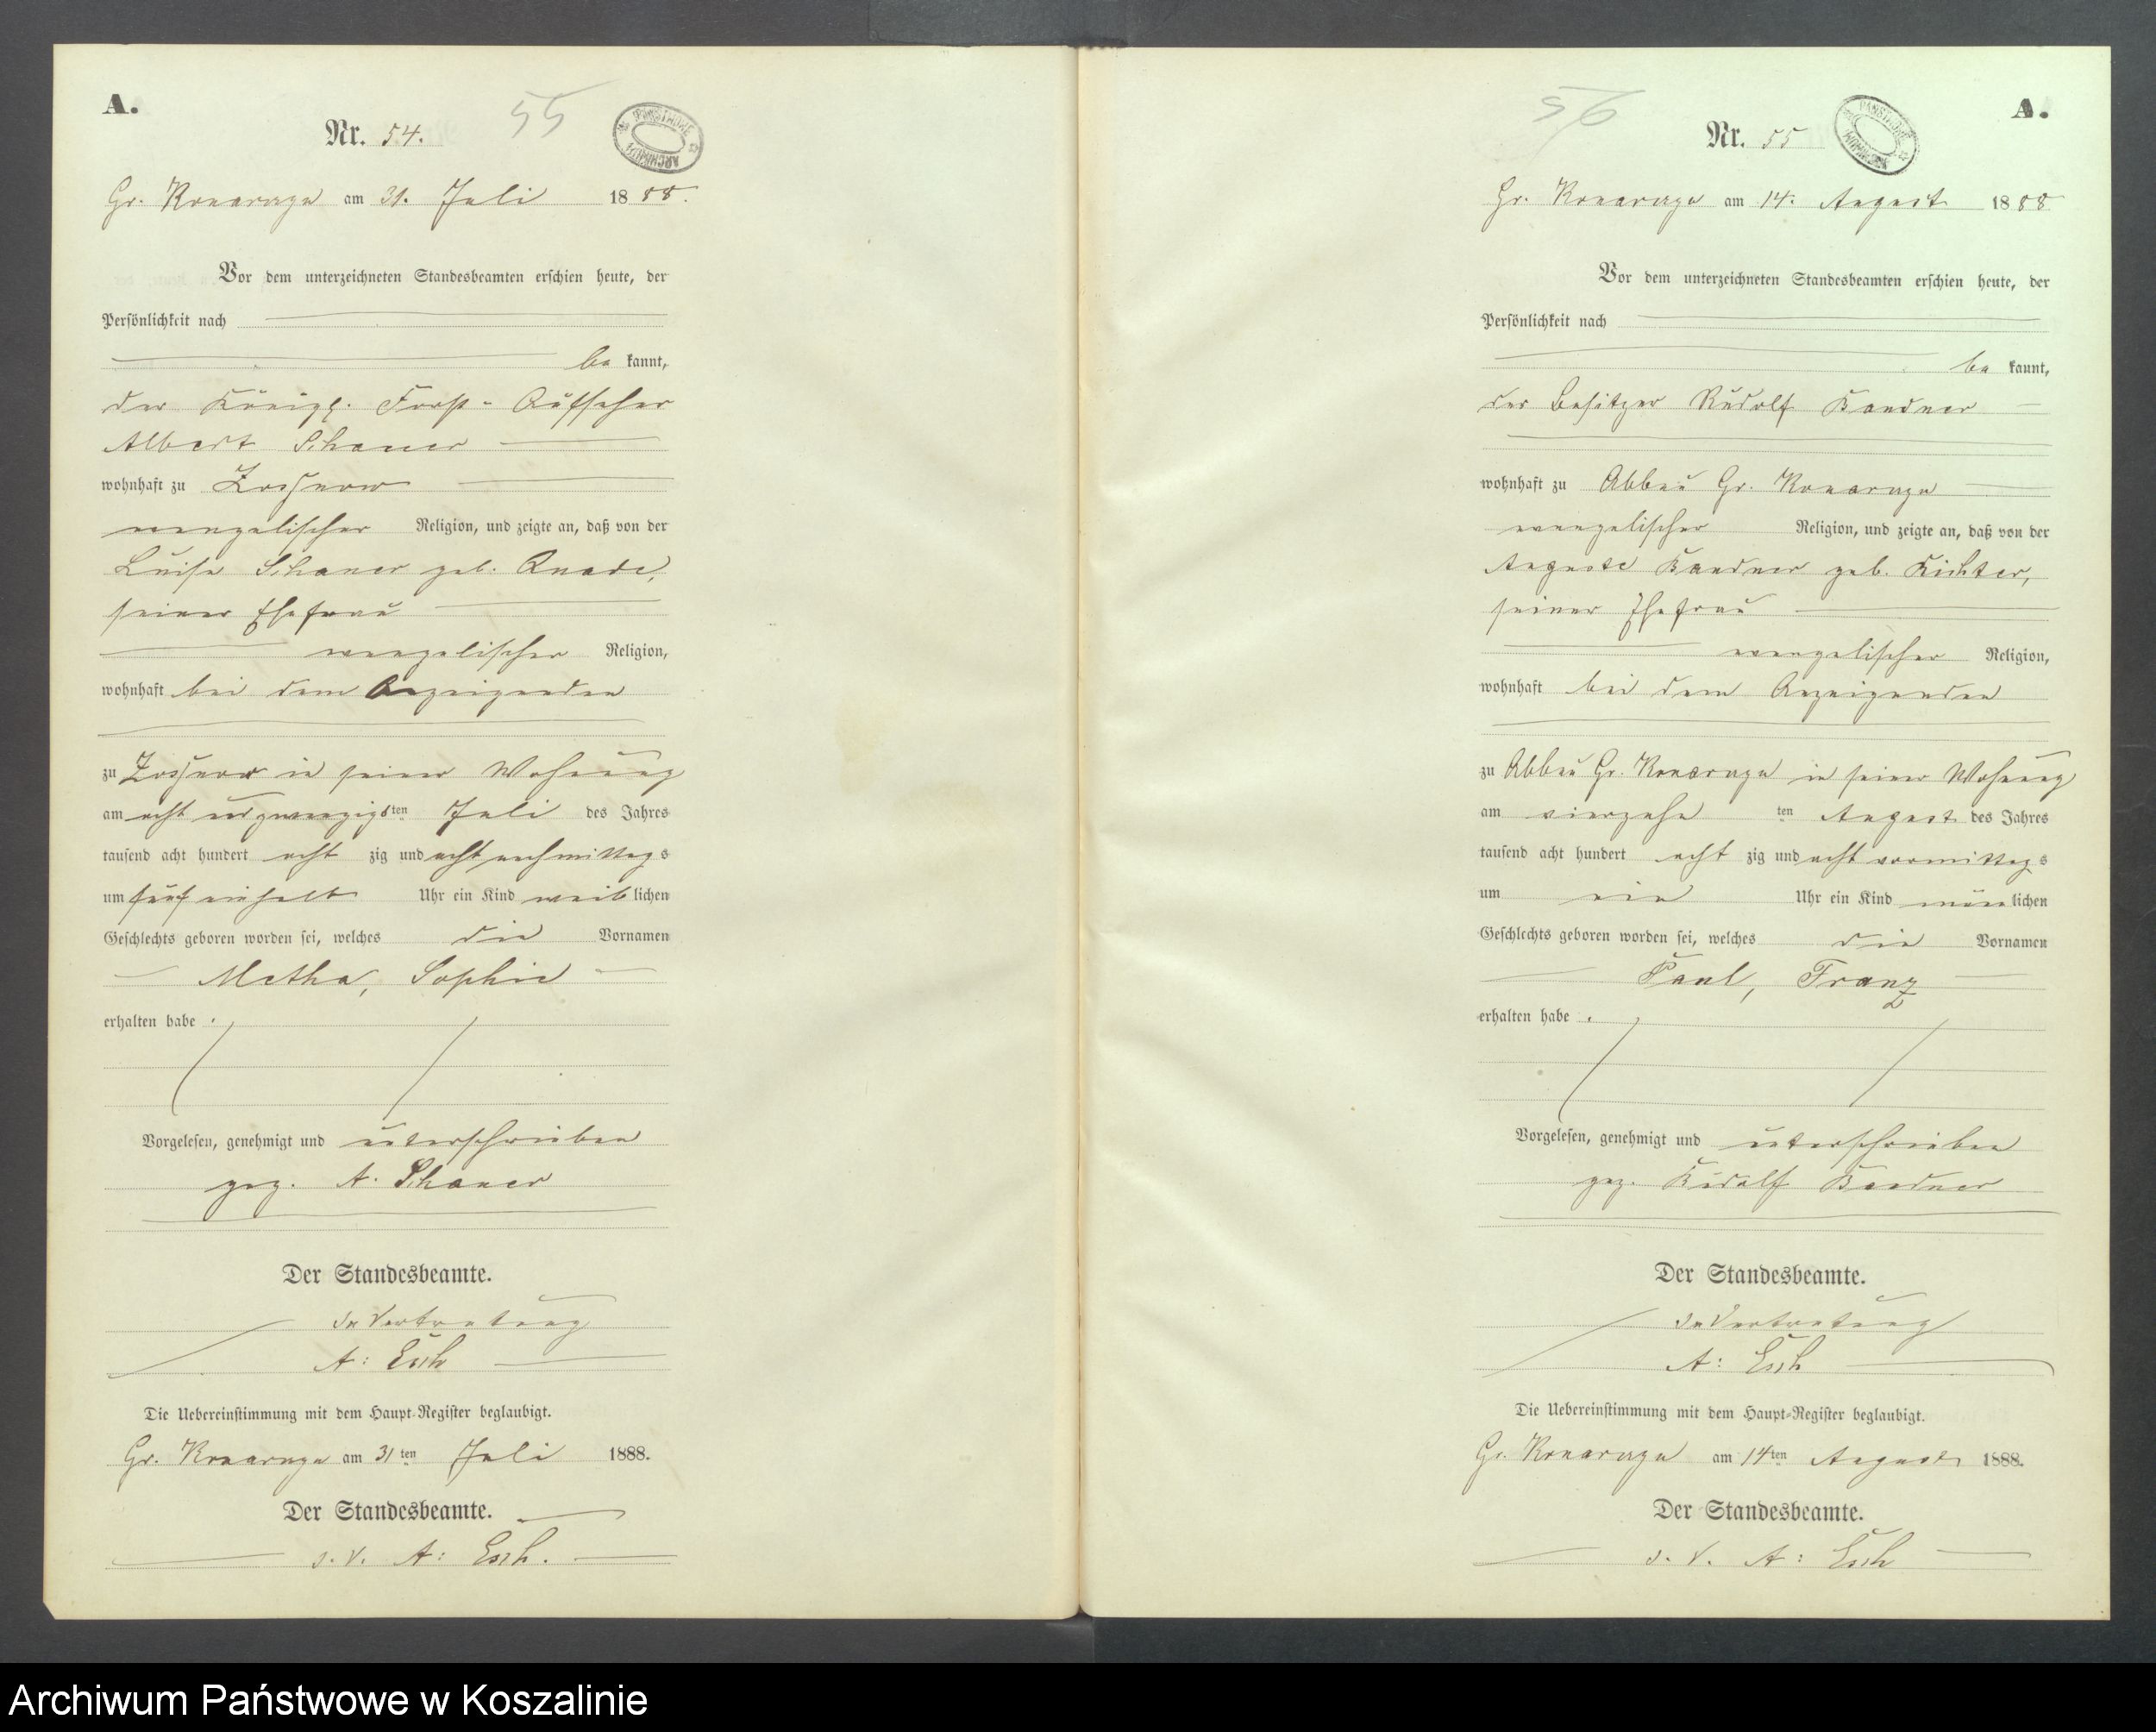 A.
Nr. 54.
55
Gr. Konarczyn am 31. Juli 1888.
Vor dem unterzeichneten Standesbeamten erschien heute, der
Persönlichkeit nach
be kannt,
der Königl. Forst-Aufseher
Albert
wohnhaft zu
evangelischer Religion, und zeigte an, daß von der
Luise geb. Quade,
seiner Ehefrau
evangelischer Religion,
wohnhaft bei dem Anzeigenden
zu in seiner Wohnung
am acht und zwanzigsten Juli des Jahres
tausend acht hundert acht zig und acht nachmittags
um fünf einhalb Uhr ein Kind weiblichen
Geschlechts geboren worden sei, welches die Vornamen
Metha, Sophie
erhalten habe.
Vorgelesen, genehmigt und unterschrieben
gez. A.
Der Standesbeamte.
In Vertretung
A: Esch
Die Uebereinstimmung mit dem Haupt-Register beglaubigt.
Gr. Konarczyn am 31ten Juli 1888.
Der Standesbeamte.
I. V. A: Esch.
A.
56
Nr. 55
Gr. Konarczyn am 14. August 1888
Vor dem unterzeichneten Standesbeamten erschien heute, der
Persönlichkeit nach
be kannt,
der Besitzer Rudolf
wohnhaft zu Abbau Gr. Konarczyn
evangelischer Religion, und zeigte an, daß von der
Auguste geb. Richter,
seiner Ehefrau
evangelischer Religion,
wohnhaft bei dem Anzeigenden
zu Abbau Gr. Konarczyn in seiner Wohnung
am vierzehn ten August des Jahres
tausend acht hundert acht zig und acht vormittags
um ein Uhr ein Kind männlichen
Geschlechts geboren worden sei, welches die Vornamen
Paul, Franz
erhalten habe.
Vorgelesen, genehmigt und unterschrieben
gez. Rudolf
Der Standesbeamte.
In Vertretung
A: Esch
Die Uebereinstimmung mit dem Haupt-Register beglaubigt.
Gr. Konarczyn am 14ten August 1888.
Der Standesbeamte.
I. V. A: Esch
Archiwum Państwowe w Koszalinie